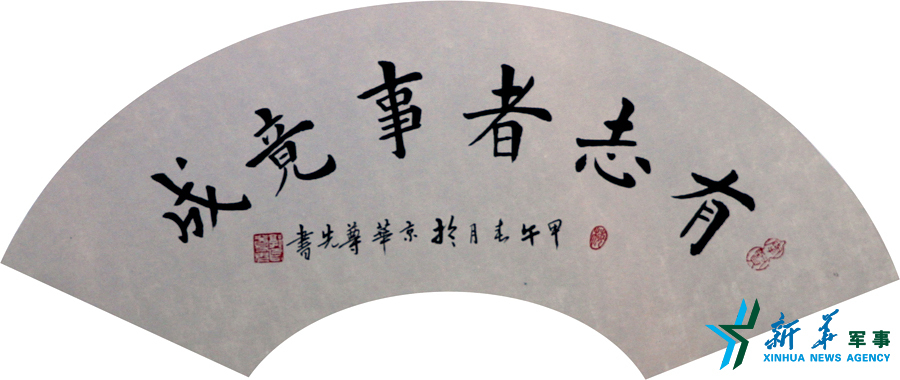 有志者事竟成
甲午春月於京華尊先書
新华军事
XINHUA NEWS AGENCY